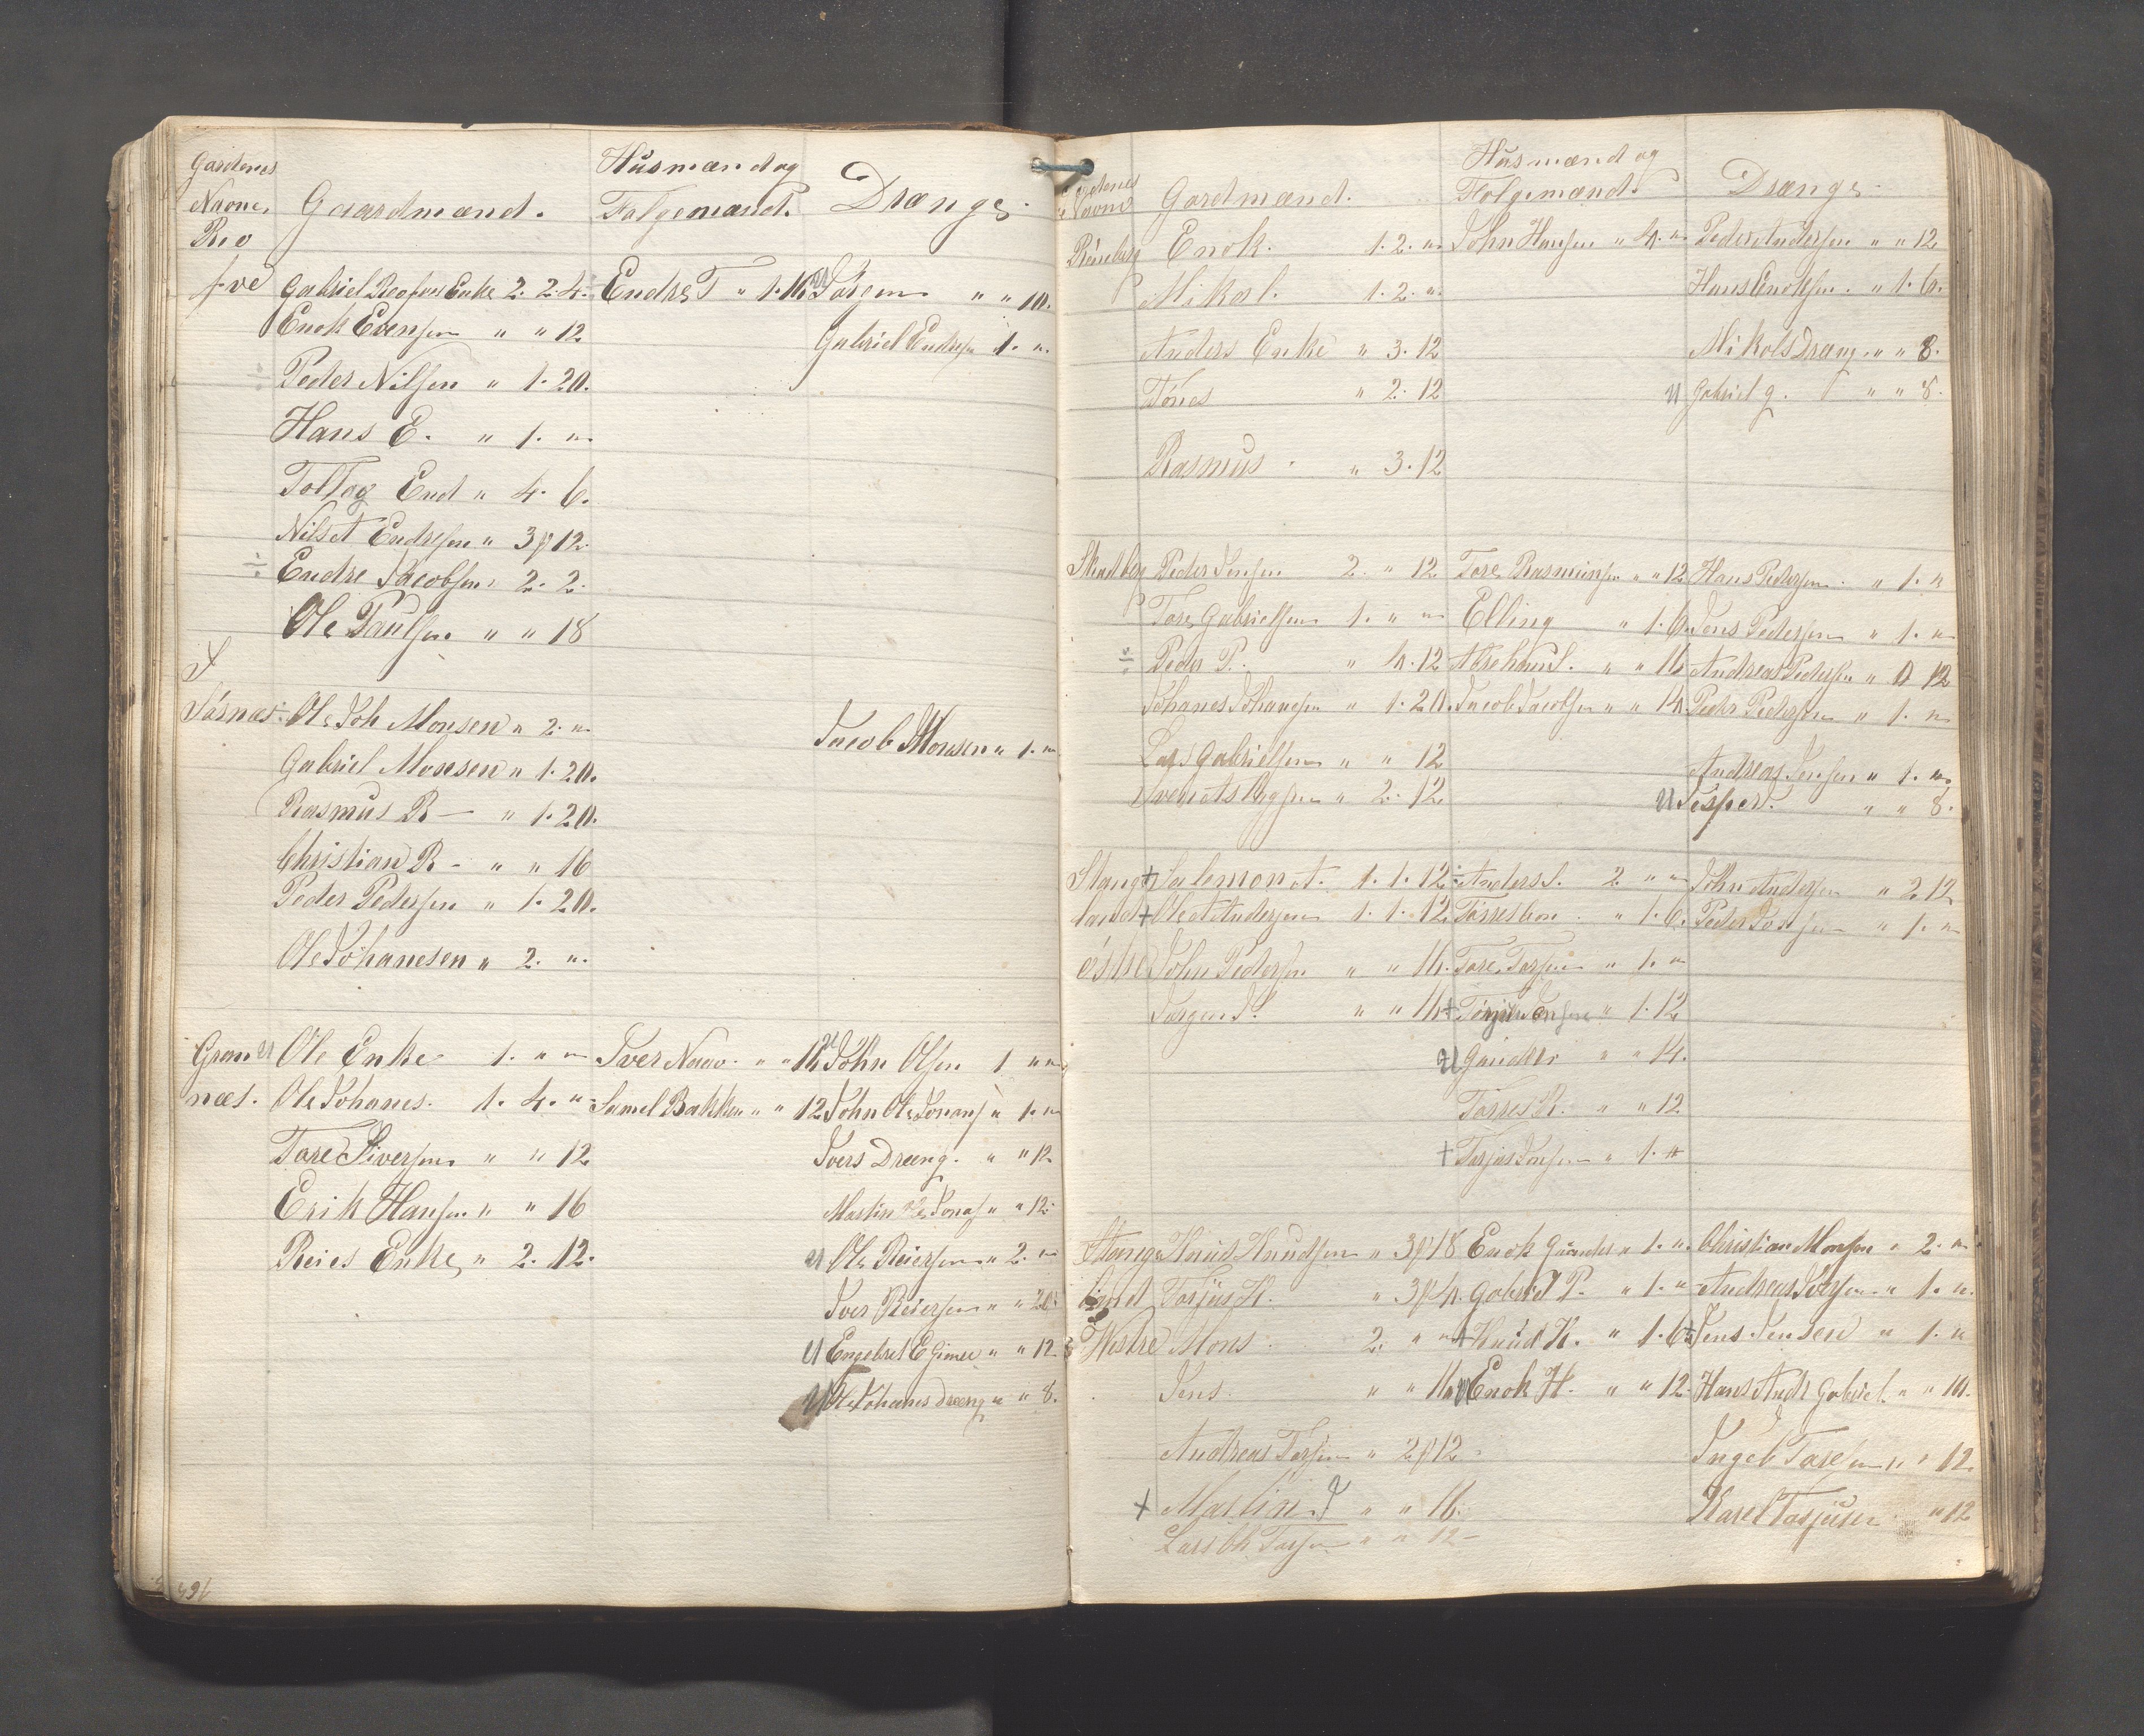 Gardenes
Navne, Gaardmænd. Husmænd og Følgemænd. Drænge.
Reo
fve Gabriel Reofves Enke 2. 2. 4. Endre T " 1. 16 U Jørgen " " 10.
Enok Evensen " " 12 Gabriel Endresen 1. "
÷ Peder Nilsen " 1. 20.
Hans E. " 1. "
Toltag End " 4. 6.
Nils A Endresen " 3 ß 12.
÷ Endre Jacobsen 2. 2.
Ole Paulsen " " 18
S
Sørnæs Ole Joh Monsen " 2. " Jacob Monsen " 1. "
Gabriel Monsen " 1. 20.
Rasmus R — " 1. 20.
Christian R - " " 16
Peder Pedersen " 1. 20.
Ole Johanesen " 2. "
Gron U Ole Enke 1. " " Iver Naav. " " 16 U John Olsen 1 " "
næs. Ole Johanes. 1. 4. " Samel Bakken " " 12 John Ole Jonans " 1. "
Tore Siversen " " 12 Ivers Dreeng. " " 12
Erik Hansen " " 16 Martin Ole Jonas " " 12.
Reies Enke, " 2. 12. U Ole Reiersen " 2. "
Iver Reiersen " " 20.
U Engebret E Gimre " " 12
U Ole Johanes dreeng " " 8.
391
Navne Gardmænd. Husmænd og Folgemænd. Drænge.
Røneberg Enok. 1. 2. " John Hansen " 4. " Peder Andersen " " 12
Mikal. 1. 2. " Hans Enoksen. " 1. 6.
Anders Enke " 3. 12 Mikals Dreng " " 8.
Tønes " 2. 12 U Gabriel G. " " 8.
Rasmus " 3. 12
Skadberg Peder Jensen 2. " 12 Tore Rasmussen " " 12 Hans Pedersen. " 1. "
Tore Gabrielsen 1. " " Elling " 1. 6. Jens Pedersen " 1. "
÷ Peder P. " 4. 12 Abraham S. " " 16 Andreas Pedersen " 0 12
Johanes Johanesen " 1. 20. Jacob Jacobsen " " 14. Peder Pedersen " 1. "
Lars Gabrielsen " " 12 Andreas Jensen " 1. "
" 2. 12 U Jesper. " " 8.
Stang + Salemon A. 1. 1. 12 Anders S. 2 " " John Andersen " 2 12
land + Ole A Andersen 1. 1. 12 " 1. 6. Peder " 1. "
østre John Pedersen " " 16. Tore Torsen " 1. "
Jørgen S. " " 16 + " 1. 12
U Gunder " " 14.
Torres K. " " 12
+ Torjus Jonsen " 1. "
Stange Knud Knudsen " 3 ß 18 Enok Gunder " 1. " Christian Monsen " 2. "
land Torjus K. " 3 ß 4. Gabriel P. " 1. " Andreas " 1. "
Westre Mons. 2. " " + Knud K. " 1. 6 + Jens Jensen " 1. "
Jens. " " 16 U Enok H. " " 12. Hans Andr Gabriel. " " 10.
Andreas Torsen " 2 ß 12 Ingeb Toresen " " 12
+ Martin J " " 16. Karel Torjusen " 12
" " 12